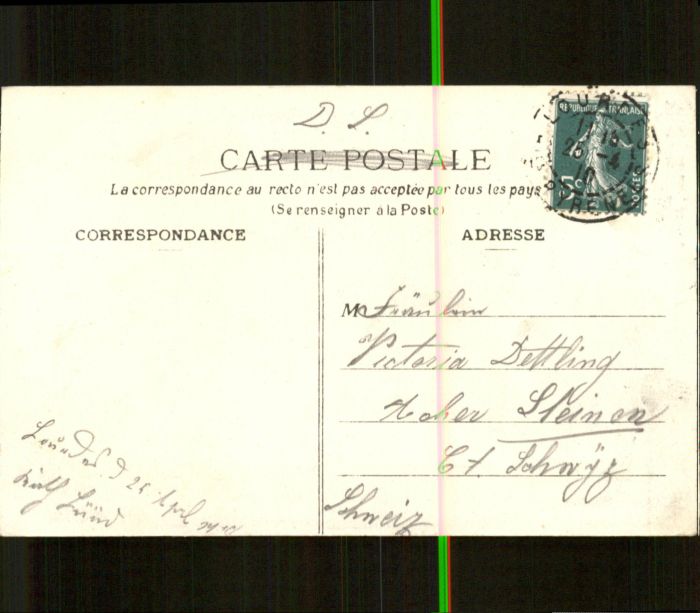 D. S.
CARTE POSTALE
La correspondance au recto n'est pas acceptée par tous les pays
(Se renseigner à la Poste)
REPUBLIQUE FRANÇAISE
5c
POSTES
CORRESPONDANCE
ADRESSE
M Fräulein
Victoria Dettling
Acher Steinen
Ct. Schwÿz
Schweiz
Lourdes d 25 April